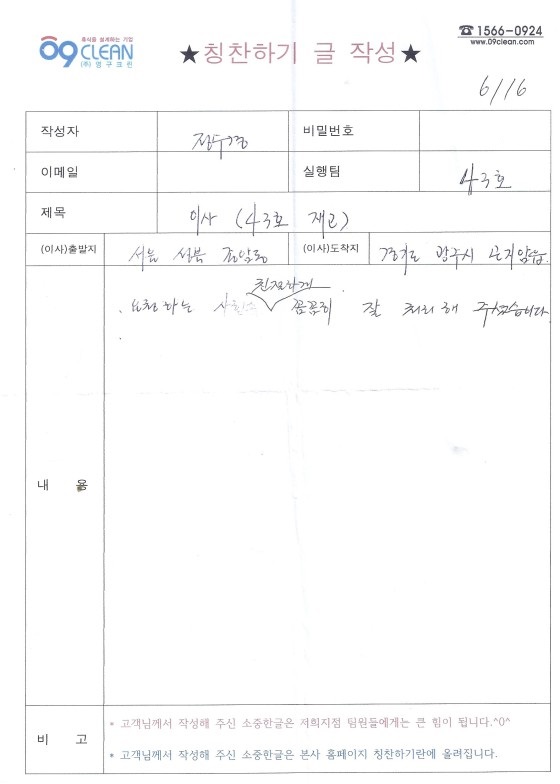 휴식을 설계하는 기업
09 CLEAN
(주)영구크린
★칭찬하기 글 작성★
☎ 1566-0924
www.09clean.com
6/16
작성자 비밀번호
이메일 실행팀 43호
제목 이사 (43호 최고)
(이사)출발지 서울 성북 종암동 (이사)도착지 경기도 광주시 곤지암읍.
친절하게
요청하는 꼼꼼히 잘 처리해 주셨습니다
내 용
비 고
* 고객님께서 작성해 주신 소중한글은 저희지점 팀원들에게는 큰 힘이 됩니다.^0^
* 고객님께서 작성해 주신 소중한글은 본사 홈페이지 칭찬하기란에 올려집니다.